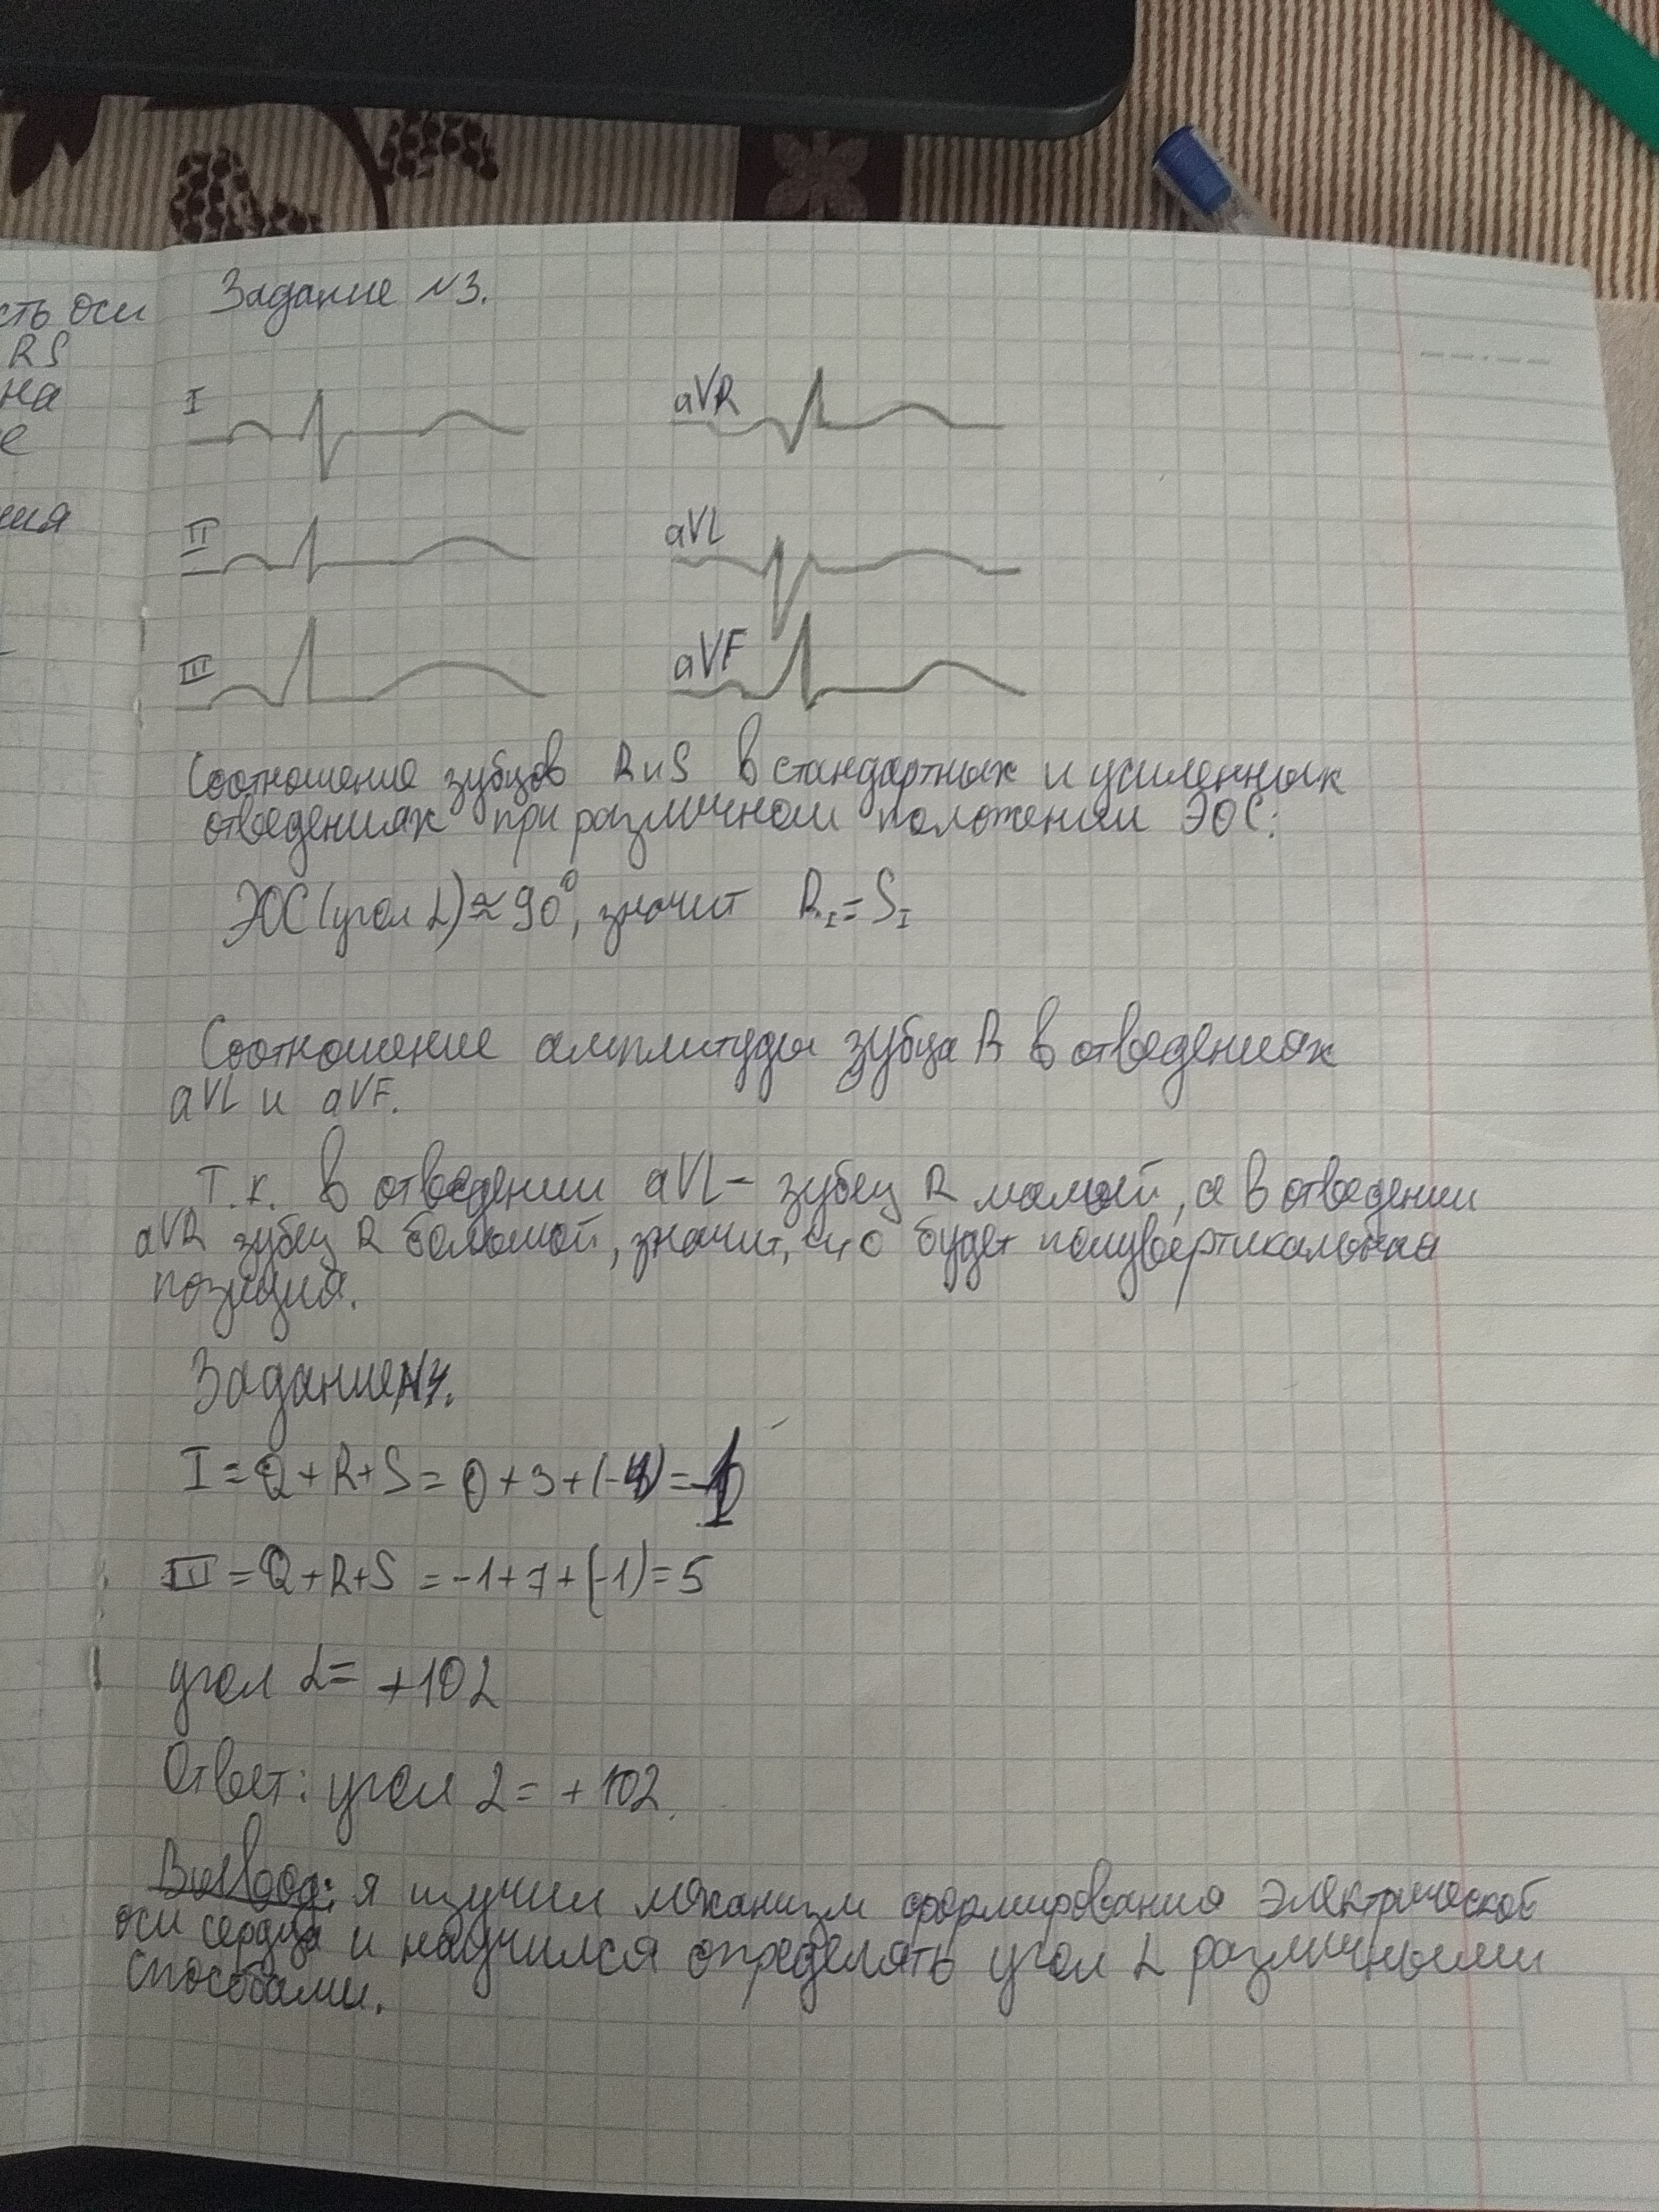 сть оси
RS
на
е
ния
Задание №3.
I
aVR
II
aVL
III
aVF
Соотношение зубцов R и S в стандартных и усиленных
отведениях при различном положении ЭОС:
ЭОС (угол L) ≈ 90°, значит R_I = S_I
Соотношение амплитуды зубца R в отведениях
aVL и aVF.
Т.к. в отведении aVL - зубец R малый, а в отведении
aVR зубец R большой, значит, что будет полувертикальная
позиция.
Задание №4.
I = Q + R + S = 0 + 3 + (-4) = -1
III = Q + R + S = -1 + 7 + (-1) = 5
угол L = +102
Ответ: угол L = +102.
Вывод: я изучил механизм формирования электрической
оси сердца и научился определять угол L различными
способами.